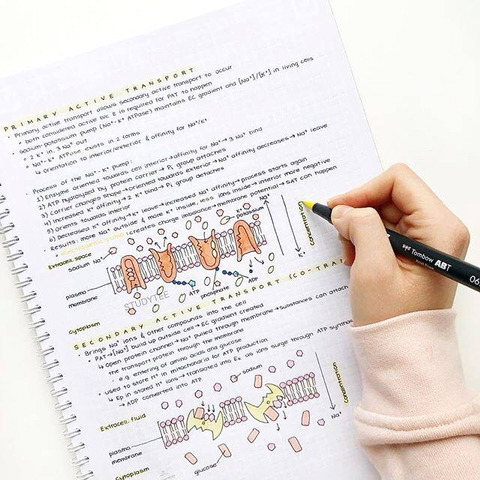 PRIMARY ACTIVE TRANSPORT
• Primary active transport allows secondary active transport to occur
• both considered active b/c E is required for PAT to happen
• Sodium-potassium pump (Na⁺-K⁺ ATPase) maintains EC gradient and [Na⁺]/[K⁺] in living cells
• 2 K⁺ in, 3 Na⁺ out
• Na⁺-K⁺ ATPase exists in 2 forms
↳ orientation to interior/exterior & affinity for Na⁺/K⁺
• Process of the Na⁺-K⁺ pump:
1) Enzyme oriented towards cell interior → affinity for Na⁺ → 3 Na⁺ bind
2) ATP hydrolyzed by protein carrier → Pᵢ group attaches
3) Carrier changes shape → oriented towards exterior → Na⁺ affinity decreases → Na⁺ leave
4) Increased K⁺ affinity → 2 K⁺ bind → Pᵢ group detaches
5) orients towards interior
6) Decreased K⁺ affinity → K⁺ leave → increased Na⁺ affinity → process starts again
• Results: more Na⁺ outside & more K⁺ inside, less ions inside → interior more negative
creates charge imbalance → membrane potential → SAT can happen
Extracell. space
sodium Na⁺
potassium
Na⁺
K⁺
Concentration
plasma
membrane
ATP
phosphate
ADP
STUDYTEE
Cytoplasm
SECONDARY ACTIVE TRANSPORT (CO-TRA
• Brings Na⁺ ions & other compounds into the cell
• PAT → [Na⁺] build up outside cell → EC gradient created
↳ Open protein channel → Na⁺ pulled through membrane → substances can attach
the transport protein through the membrane
• e.g. entering of amino acids and glucose
• used to store H⁺ in mitochondria for ATP production
↳ Ep in stored H⁺ ions → translated into Ek as ions surge through ATP
↳ ADP converted into ATP
Extracell. fluid
sodium
Concentration
Na⁺
plasma
membrane
Cytoplasm
glucose
Tombow ABT